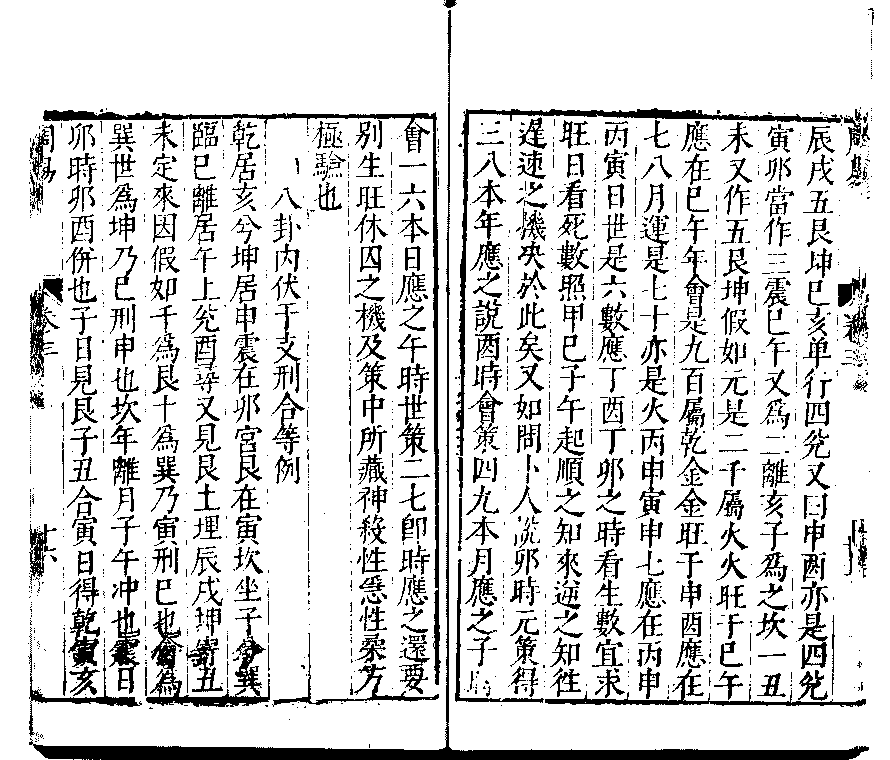 辰戌五艮坤巳亥单行四兊又曰申酉亦是四兊
寅卯當作三震巳午又爲二離亥子爲之坎一丑
未又作五艮坤假如元是二千屬火火旺于巳午
應在巳午年會是九百屬乾金金旺于申酉應在
七八月運是七十亦是火丙申寅申七應在丙申
丙寅日世是六數應丁酉丁卯之時看生數宜求
旺日看死數照甲巳子午起順之知來逆之知徃
遲速之機央於此矣又如問卜人說卯時元策得
三八本年應之說酉時會策四九本月應之子
會一六本日應之午時世策二七卽時應之還要
別生旺休囚之機及策中所藏神殺性急性柔方
極驗也
八卦內伏干支刑合等例
乾居亥兮坤居申震在卯宮艮在寅坎坐子 巽
臨巳離居午上兊酉尋又見艮土埋辰戌坤寄丑
未定來因假如千爲艮十爲巽乃寅刑巳也會爲
巽世爲坤乃巳刑申也坎年離月子午冲也震日
卯時卯酉併也子日見艮子丑合寅日得乾寅亥
周易
卷三
十六